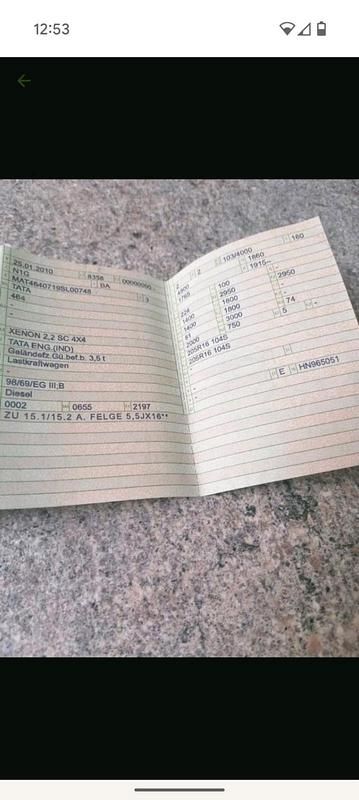 12:53
25.01.2010 8356 00000000
N1G BA
MAT4640719SL00748 3
TATA
464
-
-
XENON 2,2 SC 4X4
TATA ENG.(IND)
Geländefz.Gü.bef.b. 3,5 t
Lastkraftwagen
-
98/69/EG III;B
Diesel
0002 0655 2197
ZU 15.1/15.2 A. FELGE 5,5JX16**
2 2 103/4000 160
1860
1765 1915--
224 100 -
1400 2950 2950
1400 1600 -
81 1800 -
2000 3000 74 -
205R16 104S 750 5
205R16 104S
-
E HN965051